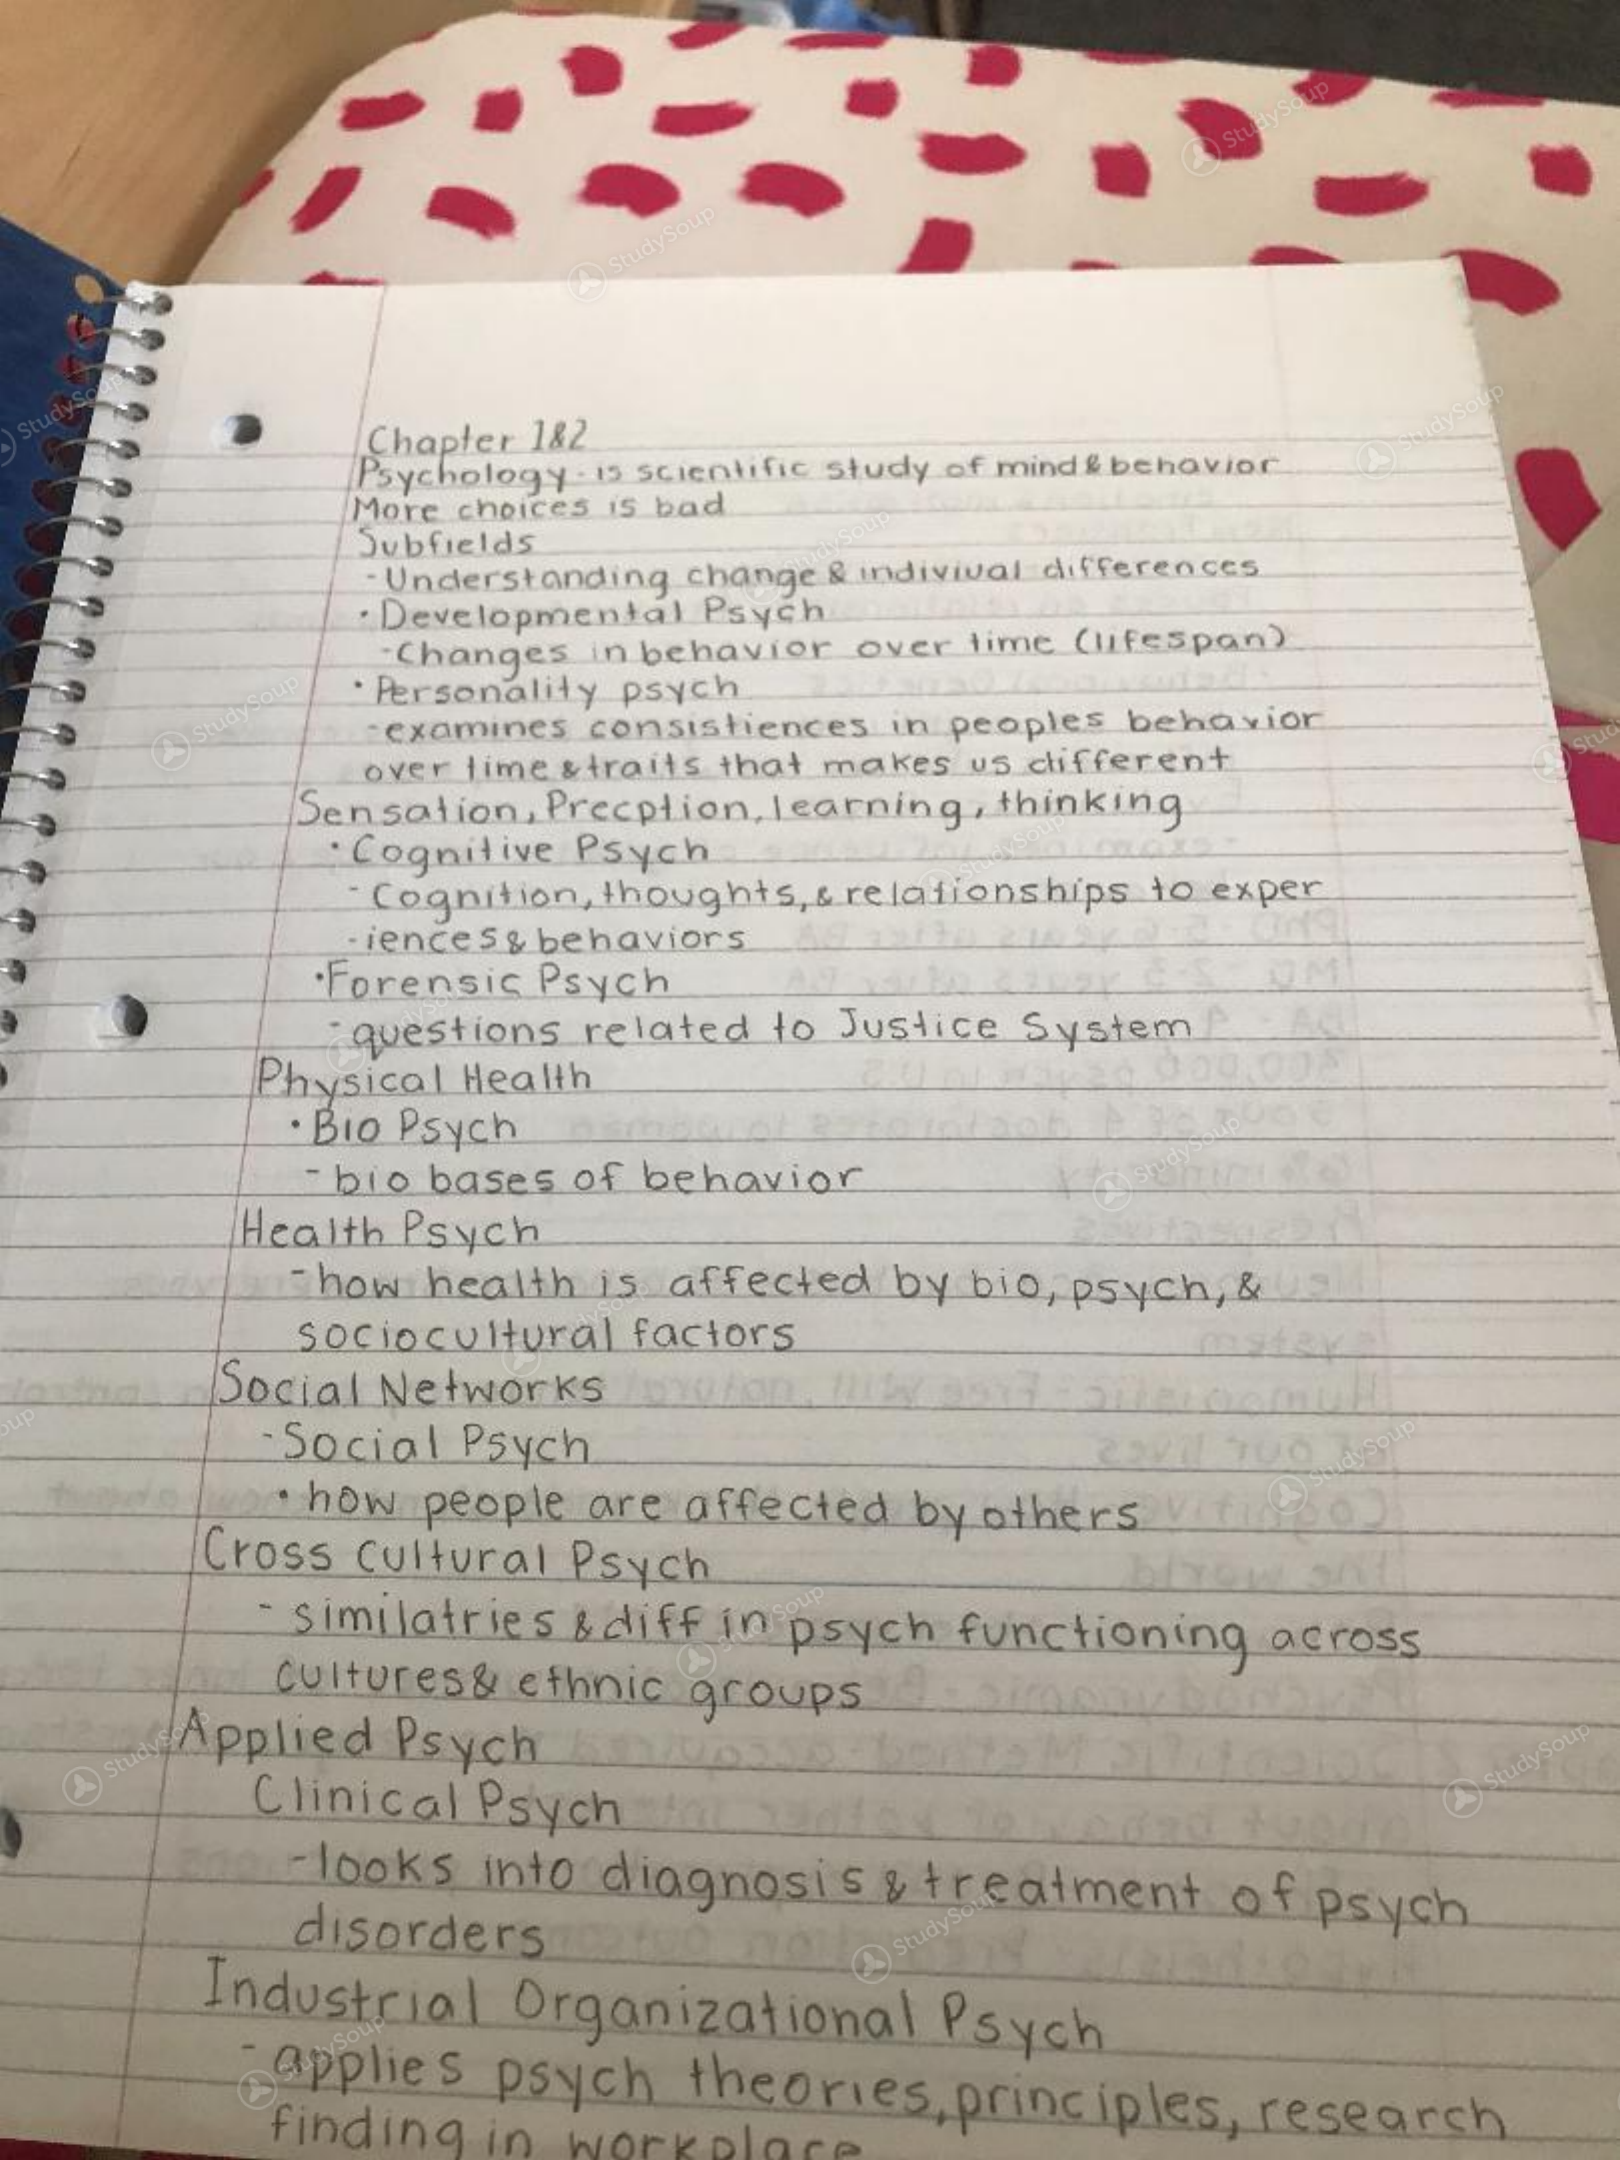 Chapter 1&2
Psychology - is scientific study of mind & behavior
More choices is bad
Subfields
- Understanding change & indiviual differences
• Developmental Psych
- Changes in behavior over time (lifespan)
• Personality psych
- examines consistiences in peoples behavior
over time & traits that makes us different
Sensation, Precption, learning, thinking
• Cognitive Psych
- Cognition, thoughts, & relationships to exper
- iences & behaviors
• Forensic Psych
- questions related to Justice System
Physical Health
• Bio Psych
- bio bases of behavior
Health Psych
- how health is affected by bio, psych, &
sociocultural factors
Social Networks
- Social Psych
• how people are affected by others
Cross Cultural Psych
- similatries & diff in psych functioning across
cultures & ethnic groups
Applied Psych
Clinical Psych
- looks into diagnosis & treatment of psych
disorders
Industrial Organizational Psych
- applies psych theories, principles, research
finding in workplace
StudySoup